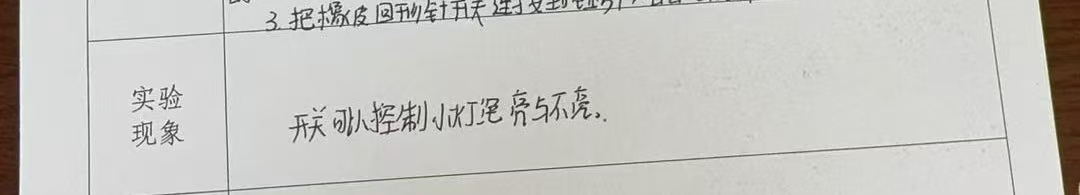 3.把橡皮回形针开关连接到
实验
现象
开关可以控制小灯泡亮与不亮。